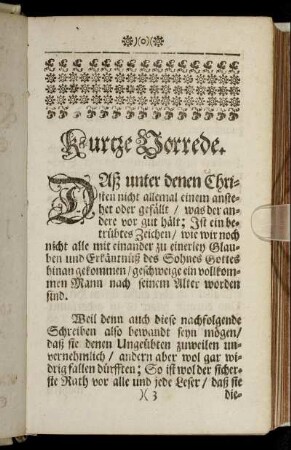 )(o)(
Kurtze Vorrede.
DAß unter denen Chri-
sten nicht allemal einem anste-
het oder gefällt / was der an-
dere vor gut hält; Ist ein be-
trübtes Zeichen / wie wir noch
nicht alle mit einander zu einerley Glau-
ben und Erkäntnüß des Sohnes Gottes
hinan gekommen / geschweige ein vollkom-
men Mann nach seinem Alter worden
sind.
Weil denn auch diese nachfolgende
Schreiben also bewandt seyn mögen /
daß sie denen Ungeübten zuweilen un-
vernehmlich / andern aber wol gar wi-
drig fallen dürfften; So ist wol der sicher-
ste Rath vor alle und jede Leser / daß sie
)( 3 die-